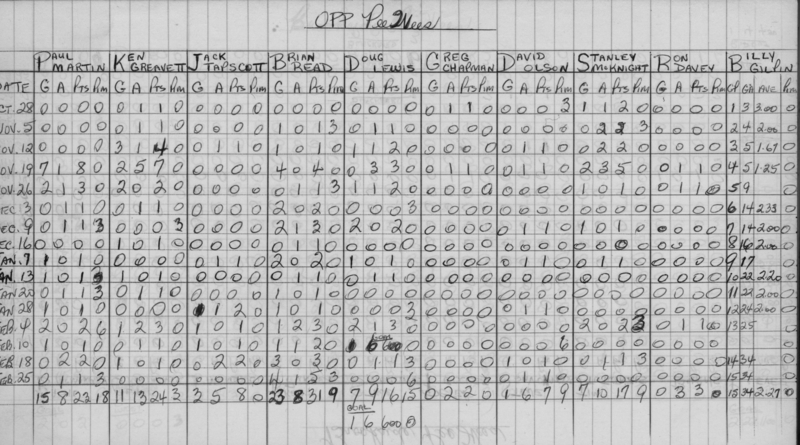 OPP Pee Wees
PAUL MARTIN KEN GREAVETT JACK TAPSCOTT BRIAN READ DOUG LEWIS GREG CHAPMAN DAVID OLSON STANLEY McKNIGHT RON DAVEY BILLY GILPIN
DATE G A Pts Pim G A Pts Pim G A Pts Pim G A Pts Pim G A Pts Pim G A Pts Pim G A Pts Pim G A Pts Pim G A Pts Pim GP GA AVE Pim
OCT. 28 0 0 0 0 0 1 1 0 0 0 0 0 0 0 0 0 0 0 0 0 0 1 1 0 0 0 0 3 1 1 2 0 0 0 0 0 1 3 3.00 0
NOV. 5 0 0 0 0 0 1 1 0 0 0 0 0 1 0 1 3 0 1 1 0 0 0 0 0 0 0 0 0 0 2 2 3 0 0 0 0 2 4 2.00 0
NOV. 12 0 0 0 0 3 1 4 0 0 1 1 0 1 0 1 0 1 1 2 0 0 0 0 0 0 1 1 0 0 2 2 0 0 0 0 0 3 5 1.67 0
NOV. 19 7 1 8 0 2 5 7 0 0 0 0 0 4 0 4 0 0 3 3 0 0 1 1 0 0 0 0 0 2 3 5 0 0 1 1 0 4 5 1.25 0
NOV. 26 2 1 3 0 2 0 2 0 0 0 0 0 0 1 1 3 1 1 2 0 0 0 0 0 0 1 1 0 1 0 1 0 0 1 1 0 5 9 0
DEC 3 0 1 1 0 0 1 1 0 0 0 0 0 2 0 2 0 0 0 0 3 0 0 0 0 0 0 0 0 0 0 0 0 0 0 0 0 6 14 2.33 0
DEC. 9 0 1 1 3 0 0 0 3 0 0 0 0 2 1 3 0 2 0 2 0 0 0 0 0 0 1 1 0 1 0 1 0 0 0 0 0 7 14 2.00 0
DEC. 16 0 0 0 0 1 0 1 0 0 0 0 0 0 1 1 0 0 0 0 0 0 0 0 0 0 0 0 0 0 0 0 0 0 0 0 0 8 16 2.00 0
JAN. 7 1 0 1 0 0 0 0 0 0 1 1 0 2 0 2 0 1 0 1 0 0 0 0 0 0 1 1 0 0 1 1 0 0 0 0 0 9 17 0
JAN. 13 1 0 1 3 1 0 1 0 0 0 0 0 0 1 1 0 0 1 1 0 0 0 0 0 0 0 0 0 0 0 0 0 0 0 0 0 10 22 2.20 0
JAN 20 0 1 1 3 0 1 1 0 0 0 0 0 1 0 1 0 0 0 0 0 0 0 0 0 0 0 0 0 0 0 0 0 0 0 0 0 11 22 2.00 0
JAN 28 1 0 1 0 0 0 0 0 1 1 2 0 1 0 1 0 0 0 0 3 0 0 0 0 0 1 1 0 0 0 0 3 0 0 0 0 12 24 2.00 0
FEB. 4 2 0 2 6 1 2 3 0 1 0 1 0 1 2 3 0 2 1 3 0 0 0 0 0 0 0 0 0 2 0 2 3 0 1 1 0 13 25 0
FEB. 10 1 0 1 0 0 1 1 0 1 0 1 0 1 1 2 0 0 0 0 0 0 0 0 6 0 0 0 0 0 0 0 0 0
FEB 18 0 2 2 0 1 0 1 0 0 2 2 0 3 0 3 0 0 1 1 3 0 0 0 0 1 0 1 0 0 1 1 3 0 0 0 0 14 34 0
FEB. 25 0 1 1 3 0 0 0 0 0 0 0 0 4 1 5 3 0 0 0 6 0 0 0 0 0 1 1 0 0 0 0 0 0 0 0 0 15 34 0
15 8 23 18 11 13 24 3 3 5 8 0 23 8 31 9 7 9 16 15 0 2 2 0 1 6 7 9 7 10 17 9 0 3 3 0 15 34 2.27 0
GOAL
1 6 6.00 0